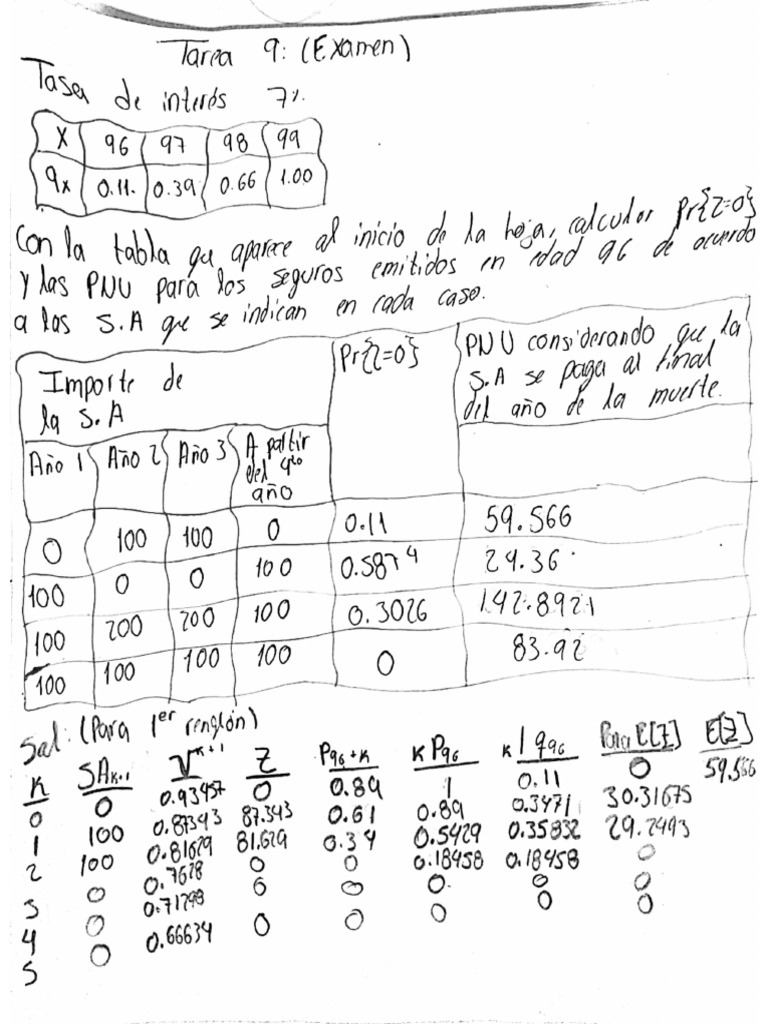 Tarea 9: (Examen)
Tasa de interés 7%.
X 96 97 98 99
qx 0.11. 0.39 0.66 1.00
Con la tabla que aparece al inicio de la hoja, calcular Pr{Z=0}
y las PNU para los seguros emitidos en edad 96 de acuerdo
a las S.A que se indican en cada caso.
Importe de
la S.A
Pr{Z=0}
PNU considerando que la
S.A se paga al final
del año de la muerte.
Año 1 Año 2 Año 3 A partir
del 4to
año
0 100 100 0 0.11 59.566
100 0 0 100 0.5874 24.36
100 200 200 100 0.3026 142.8921
100 100 100 100 0 83.92
Sol: (Para 1er renglón)
K SAk+1 V^k+1 Z P96+k kP96 k|q96 Para E[Z] E[Z]
0 0 0.93457 0 0.89 1 0.11 0 59.566
1 100 0.87343 87.343 0.61 0.89 0.3471 30.31675
2 100 0.81629 81.629 0.34 0.5429 0.35832 29.2493
3 0 0.7628 0 0 0.18458 0.18458 0
4 0 0.71298 0 0 0. 0 0
5 0 0.66634 0 0 0 0 0